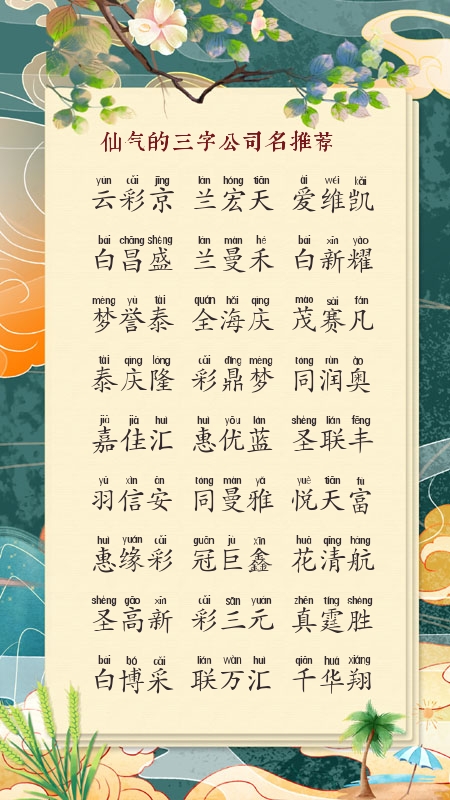 仙气的三字公司名推荐
yún cǎi jīng lán hóng tiān ài wéi kǎi
云彩京 兰宏天 爱维凯
bái chāng shèng lán màn hé bái xīn yào
白昌盛 兰曼禾 白新耀
mèng yù tài quán hǎi qìng mào sài fán
梦誉泰 全海庆 茂赛凡
tài qìng lóng cǎi dǐng mèng tóng rùn ào
泰庆隆 彩鼎梦 同润奥
jiā jiā huì huì yōu lán shèng lián fēng
嘉佳汇 惠优蓝 圣联丰
yǔ xìn ān tóng màn yǎ yuè tiān fù
羽信安 同曼雅 悦天富
huì yuán cǎi guān jù xīn huā qīng háng
惠缘彩 冠巨鑫 花清航
shèng gāo xīn cǎi sān yuán zhēn tíng shèng
圣高新 彩三元 真霆胜
bái bó cǎi lián wàn huì qiān huá xiáng
白博采 联万汇 千华翔